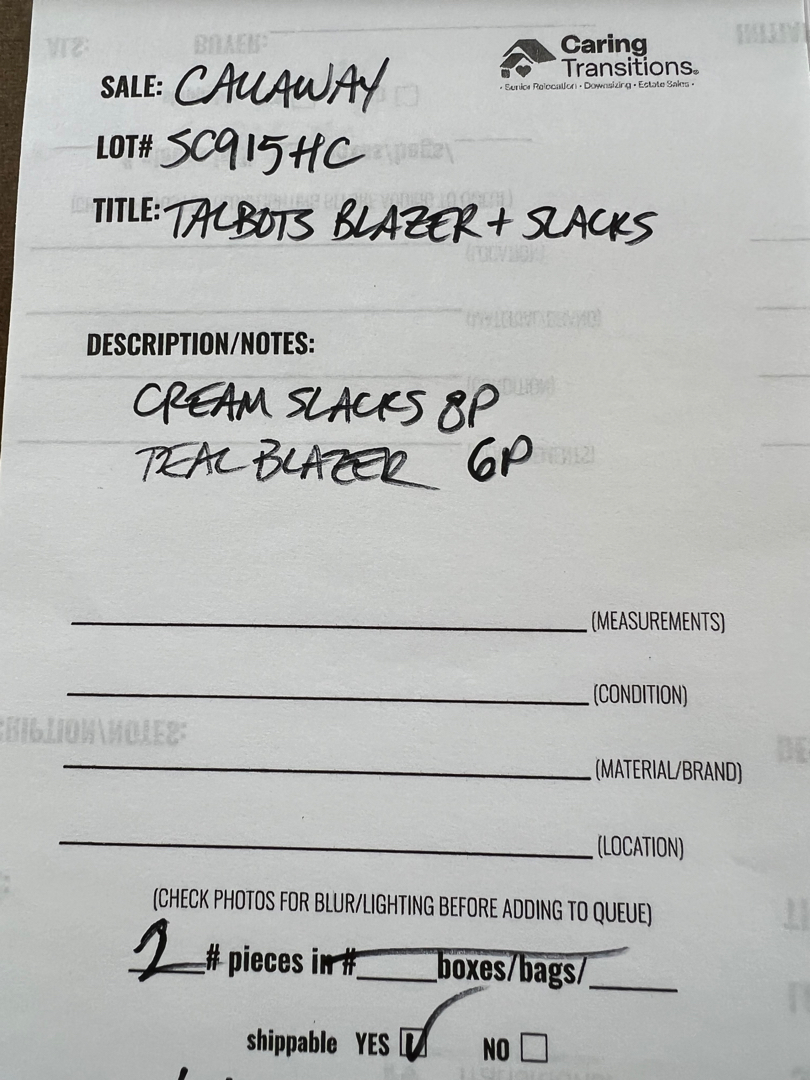 Caring
Transitions®
• Senior Relocation • Downsizing • Estate Sales •
SALE: CALLAWAY
LOT# SC915HC
TITLE: TALBOTS BLAZER + SLACKS
DESCRIPTION/NOTES:
CREAM SLACKS 8P
TEAL BLAZER 6P
(MEASUREMENTS)
(CONDITION)
(MATERIAL/BRAND)
(LOCATION)
(CHECK PHOTOS FOR BLUR/LIGHTING BEFORE ADDING TO QUEUE)
2 # pieces in #____boxes/bags/____
shippable YES ☑ NO ☐